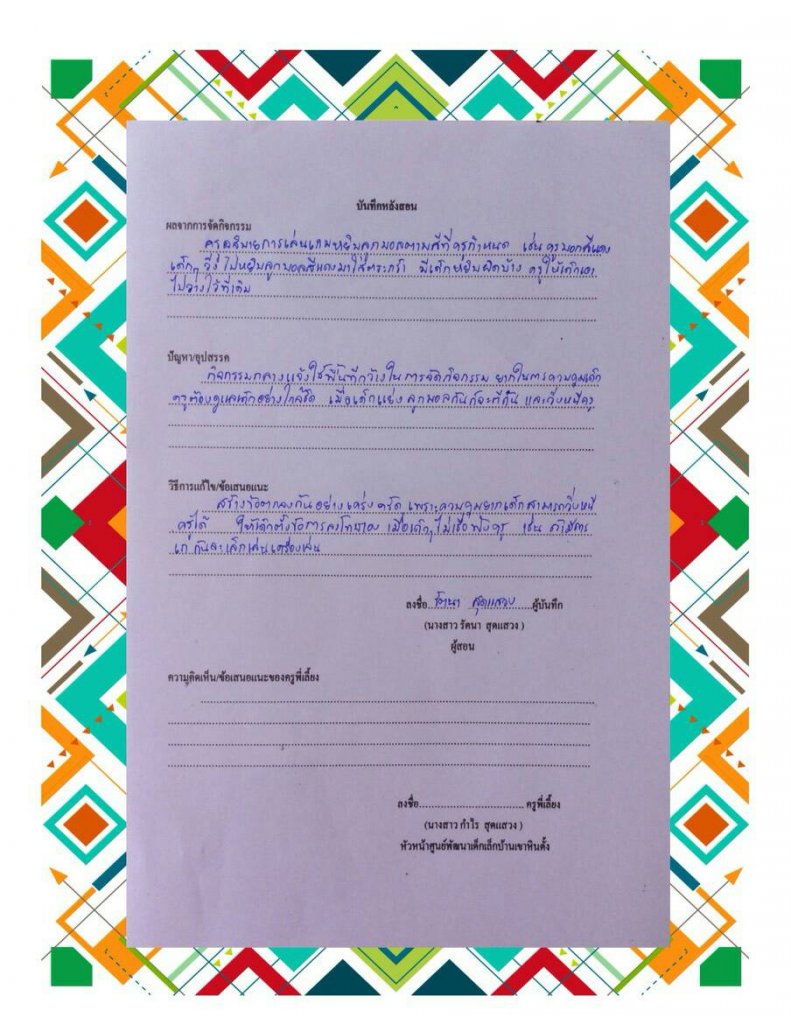 บันทึกหลังสอน
ผลจากการจัดกิจกรรม
ครูอธิบายการเล่นเกมหยิบลูกบอลตามสีที่ครูกำหนด เช่น ครูบอกสีแดง
เด็กๆ วิ่งไปหยิบลูกบอลสีแดงมาใส่ตะกร้า มีเด็กหยิบผิดบ้าง ครูให้เด็กเอา
ไปวางไว้ที่เดิม
ปัญหา/อุปสรรค
กิจกรรมกลางแจ้งใช้พื้นที่กว้างในการจัดกิจกรรม ยากในการควบคุมเด็ก
ครูต้องดูแลเด็กอย่างใกล้ชิด เมื่อเด็กแย่งลูกบอลกันก็จะตีกัน และวิ่งหนีครู
วิธีการแก้ไข/ข้อเสนอแนะ
สร้างข้อตกลงกันอย่างเคร่งครัด เพราะควบคุมยากเด็กสามารถวิ่งหนี
ครูได้ ให้เด็กตั้งข้อการลงโทษเอง เมื่อเด็กๆ ไม่เชื่อฟังครู เช่น ถ้ามีการ
กันจะเล่นเครื่องเล่น
ลงชื่อ รัตนา สุดแสวง ผู้บันทึก
(นางสาว รัตนา สุดแสวง )
ผู้สอน
ความคิดเห็น/ข้อเสนอแนะของครูพี่เลี้ยง
ลงชื่อ............................ครูพี่เลี้ยง
(นางสาว กำไร สุดแสวง )
หัวหน้าศูนย์พัฒนาเด็กเล็กบ้านเขาหินตั้ง